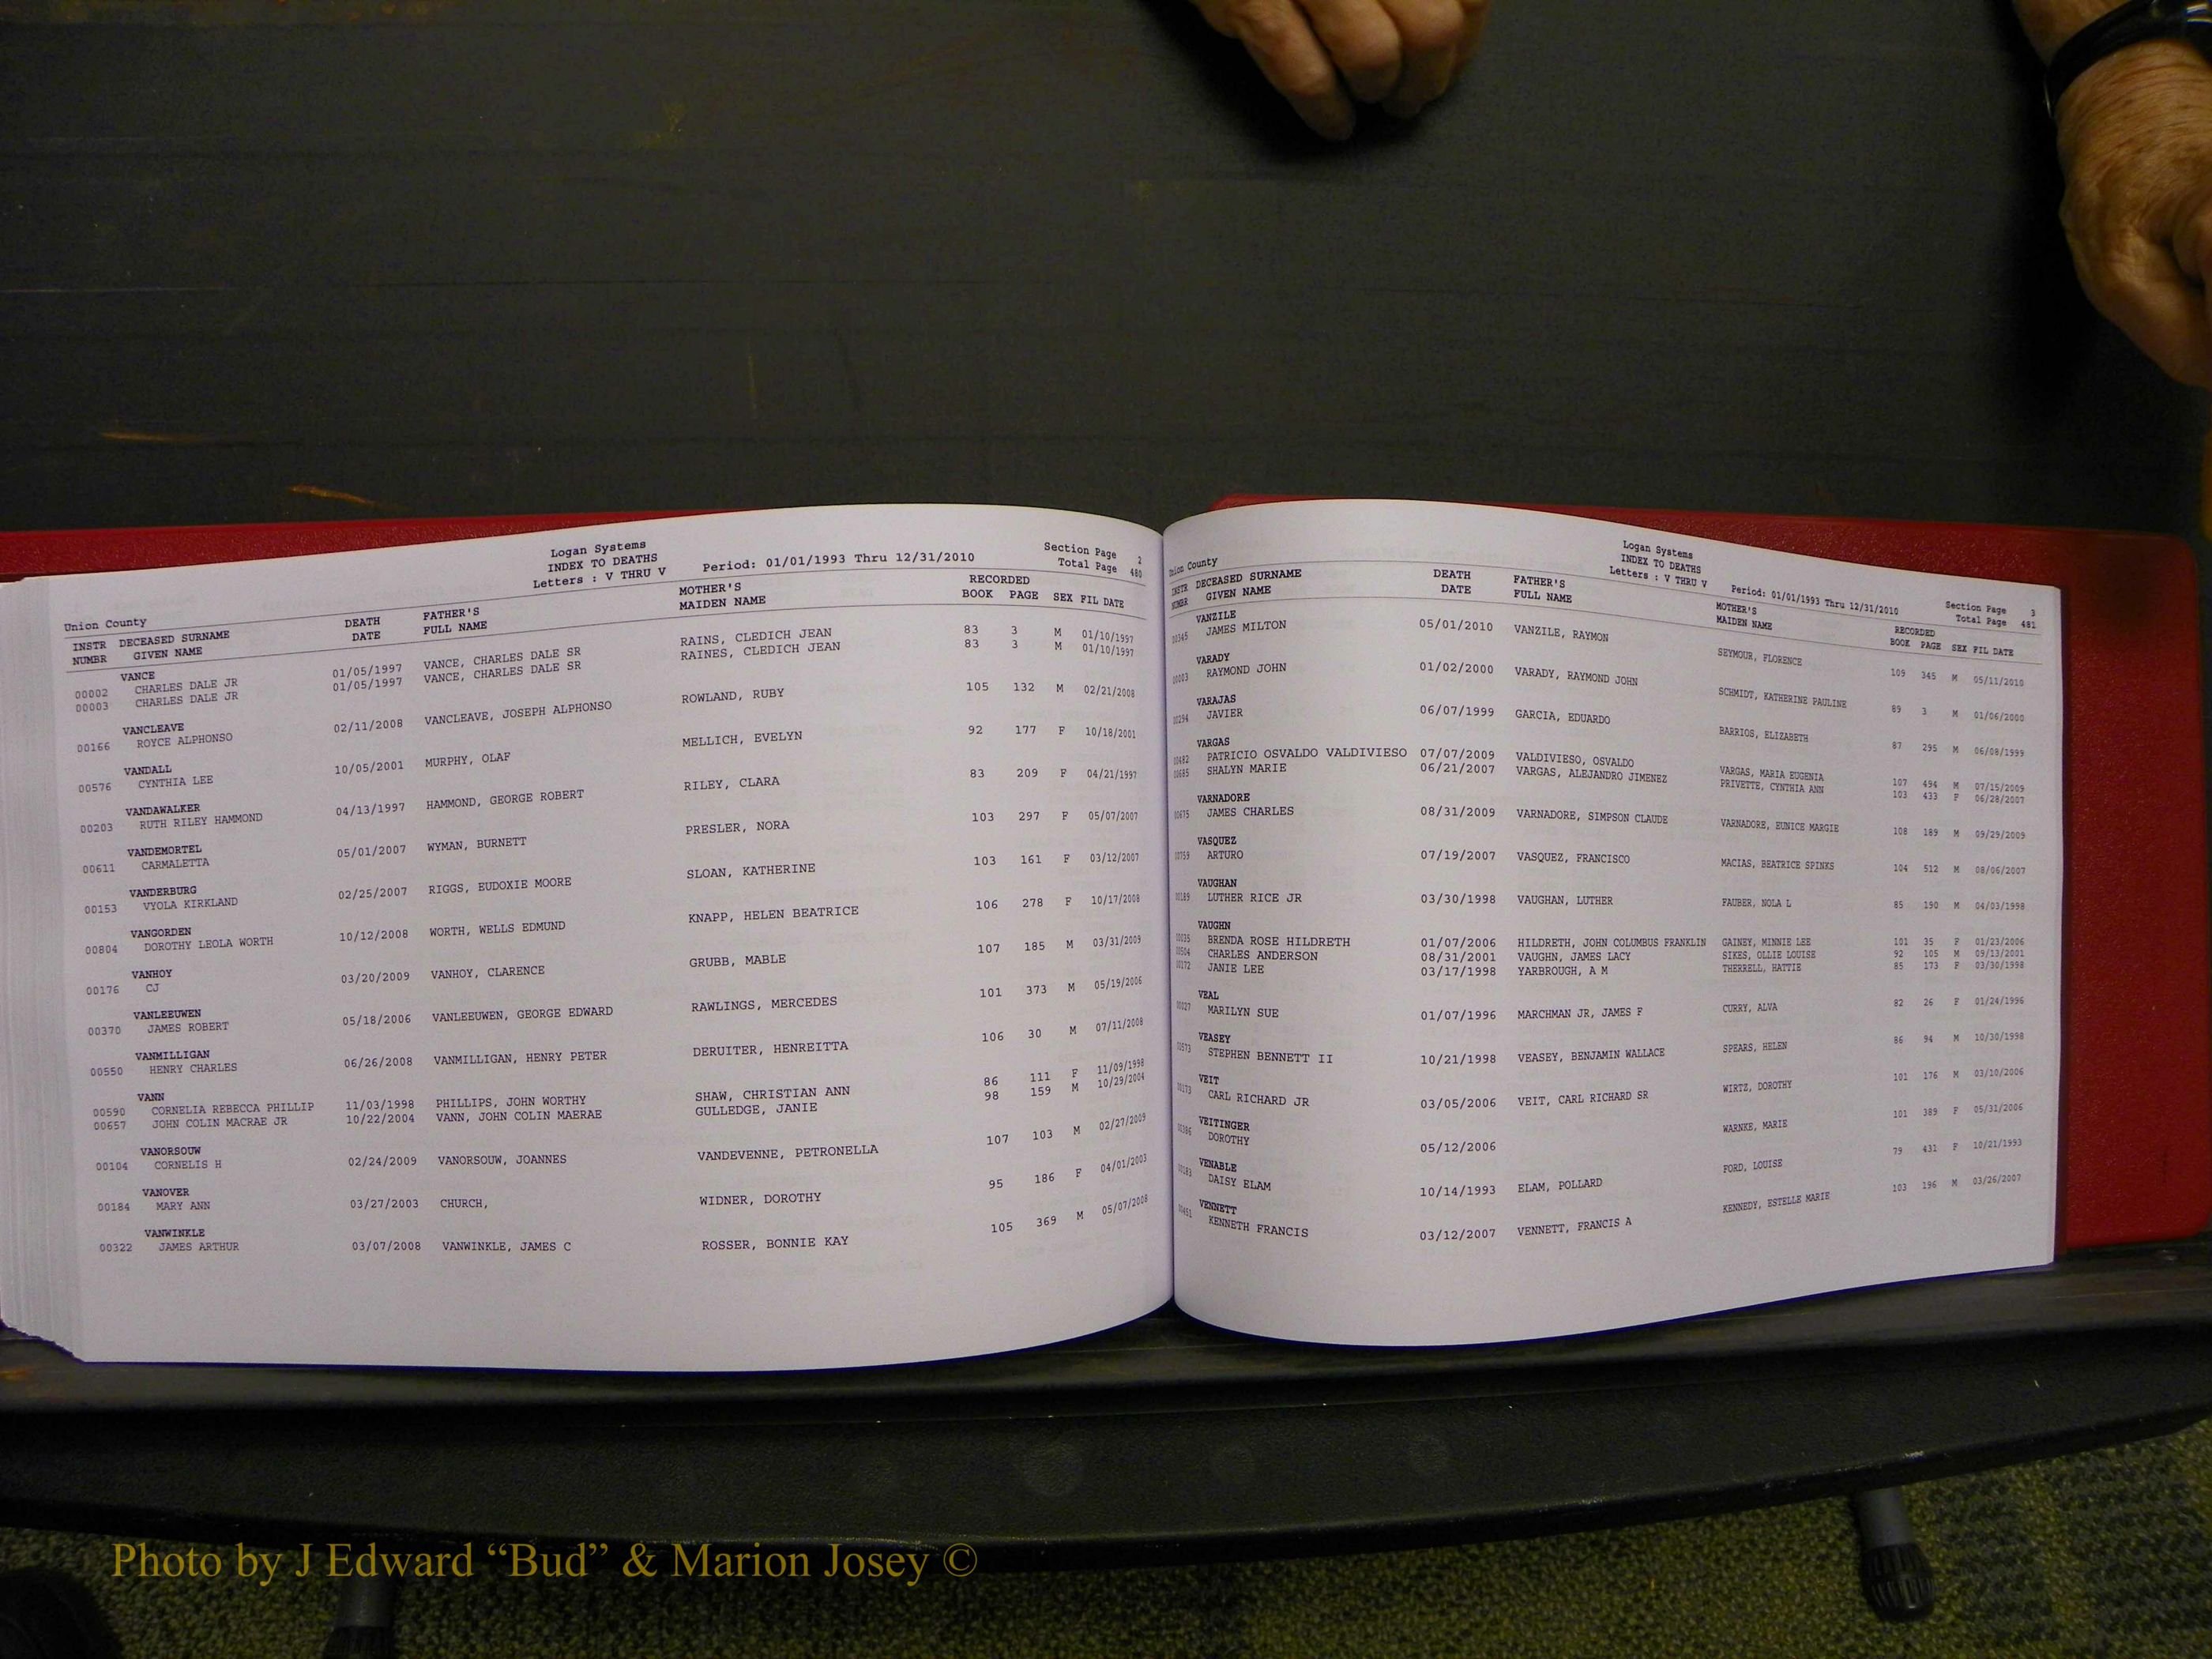 Logan Systems
INDEX TO DEATHS
Letters : V THRU V Period: 01/01/1993 Thru 12/31/2010
Section Page 2
Total Page 480
Union County
INSTR DECEASED SURNAME DEATH FATHER'S MOTHER'S RECORDED
NUMBR GIVEN NAME DATE FULL NAME MAIDEN NAME BOOK PAGE SEX FIL DATE
VANCE
00002 CHARLES DALE JR 01/05/1997 VANCE, CHARLES DALE SR RAINS, CLEDICH JEAN 83 3 M 01/10/1997
00003 CHARLES DALE JR 01/05/1997 VANCE, CHARLES DALE SR RAINES, CLEDICH JEAN 83 3 M 01/10/1997
VANCLEAVE
00166 ROYCE ALPHONSO 02/11/2008 VANCLEAVE, JOSEPH ALPHONSO ROWLAND, RUBY 105 132 M 02/21/2008
VANDALL
00576 CYNTHIA LEE 10/05/2001 MURPHY, OLAF MELLICH, EVELYN 92 177 F 10/18/2001
VANDAWALKER
00203 RUTH RILEY HAMMOND 04/13/1997 HAMMOND, GEORGE ROBERT RILEY, CLARA 83 209 F 04/21/1997
VANDEMORTEL
00611 CARMALETTA 05/01/2007 WYMAN, BURNETT PRESLER, NORA 103 297 F 05/07/2007
VANDERBURG
00153 VYOLA KIRKLAND 02/25/2007 RIGGS, EUDOXIE MOORE SLOAN, KATHERINE 103 161 F 03/12/2007
VANGORDEN
00804 DOROTHY LEOLA WORTH 10/12/2008 WORTH, WELLS EDMUND KNAPP, HELEN BEATRICE 106 278 F 10/17/2008
VANHOY
00176 CJ 03/20/2009 VANHOY, CLARENCE GRUBB, MABLE 107 185 M 03/31/2009
VANLEEUWEN
00370 JAMES ROBERT 05/18/2006 VANLEEUWEN, GEORGE EDWARD RAWLINGS, MERCEDES 101 373 M 05/19/2006
VANMILLIGAN
00550 HENRY CHARLES 06/26/2008 VANMILLIGAN, HENRY PETER DERUITER, HENREITTA 106 30 M 07/11/2008
VANN
00590 CORNELIA REBECCA PHILLIP 11/03/1998 PHILLIPS, JOHN WORTHY SHAW, CHRISTIAN ANN 86 111 F 11/09/1998
00657 JOHN COLIN MACRAE JR 10/22/2004 VANN, JOHN COLIN MAERAE GULLEDGE, JANIE 98 159 M 10/29/2004
VANORSOUW
00104 CORNELIS H 02/24/2009 VANORSOUW, JOANNES VANDEVENNE, PETRONELLA 107 103 M 02/27/2009
VANOVER
00184 MARY ANN 03/27/2003 CHURCH, WIDNER, DOROTHY 95 186 F 04/01/2003
VANWINKLE
00322 JAMES ARTHUR 03/07/2008 VANWINKLE, JAMES C ROSSER, BONNIE KAY 105 369 M 05/07/2008
Logan Systems
INDEX TO DEATHS
Letters : V THRU V Period: 01/01/1993 Thru 12/31/2010
Section Page 3
Total Page 481
Union County
INSTR DECEASED SURNAME DEATH FATHER'S MOTHER'S RECORDED
NUMBR GIVEN NAME DATE FULL NAME MAIDEN NAME BOOK PAGE SEX FIL DATE
VANZILE
JAMES MILTON 05/01/2010 VANZILE, RAYMON SEYMOUR, FLORENCE 109 345 M 05/11/2010
VARADY
00003 RAYMOND JOHN 01/02/2000 VARADY, RAYMOND JOHN SCHMIDT, KATHERINE PAULINE 89 3 M 01/06/2000
VARAJAS
JAVIER 06/07/1999 GARCIA, EDUARDO BARRIOS, ELIZABETH 87 295 M 06/08/1999
VARGAS
PATRICIO OSVALDO VALDIVIESO 07/07/2009 VALDIVIESO, OSVALDO VARGAS, MARIA EUGENIA 107 494 M 07/15/2009
SHALYN MARIE 06/21/2007 VARGAS, ALEJANDRO JIMENEZ PRIVETTE, CYNTHIA ANN 103 433 F 06/28/2007
VARNADORE
JAMES CHARLES 08/31/2009 VARNADORE, SIMPSON CLAUDE VARNADORE, EUNICE MARGIE 108 189 M 09/29/2009
VASQUEZ
ARTURO 07/19/2007 VASQUEZ, FRANCISCO MACIAS, BEATRICE SPINKS 104 512 M 08/06/2007
VAUGHAN
LUTHER RICE JR 03/30/1998 VAUGHAN, LUTHER FAUBER, NOLA L 85 190 M 04/03/1998
VAUGHN
BRENDA ROSE HILDRETH 01/07/2006 HILDRETH, JOHN COLUMBUS FRANKLIN GAINEY, MINNIE LEE 101 35 F 01/23/2006
CHARLES ANDERSON 08/31/2001 VAUGHN, JAMES LACY SIKES, OLLIE LOUISE 92 105 M 09/13/2001
JANIE LEE 03/17/1998 YARBROUGH, A M THERRELL, HATTIE 85 173 F 03/30/1998
VEAL
MARILYN SUE 01/07/1996 MARCHMAN JR, JAMES F CURRY, ALVA 82 26 F 01/24/1996
VEASEY
STEPHEN BENNETT II 10/21/1998 VEASEY, BENJAMIN WALLACE SPEARS, HELEN 86 94 M 10/30/1998
VEIT
CARL RICHARD JR 03/05/2006 VEIT, CARL RICHARD SR WIRTZ, DOROTHY 101 176 M 03/10/2006
VEITINGER
DOROTHY 05/12/2006 WARNKE, MARIE 101 389 F 05/31/2006
VENABLE
DAISY ELAM 10/14/1993 ELAM, POLLARD FORD, LOUISE 79 431 F 10/21/1993
VENNETT
KENNETH FRANCIS 03/12/2007 VENNETT, FRANCIS A KENNEDY, ESTELLE MARIE 103 196 M 03/26/2007
Photo by J Edward “Bud” & Marion Josey ©